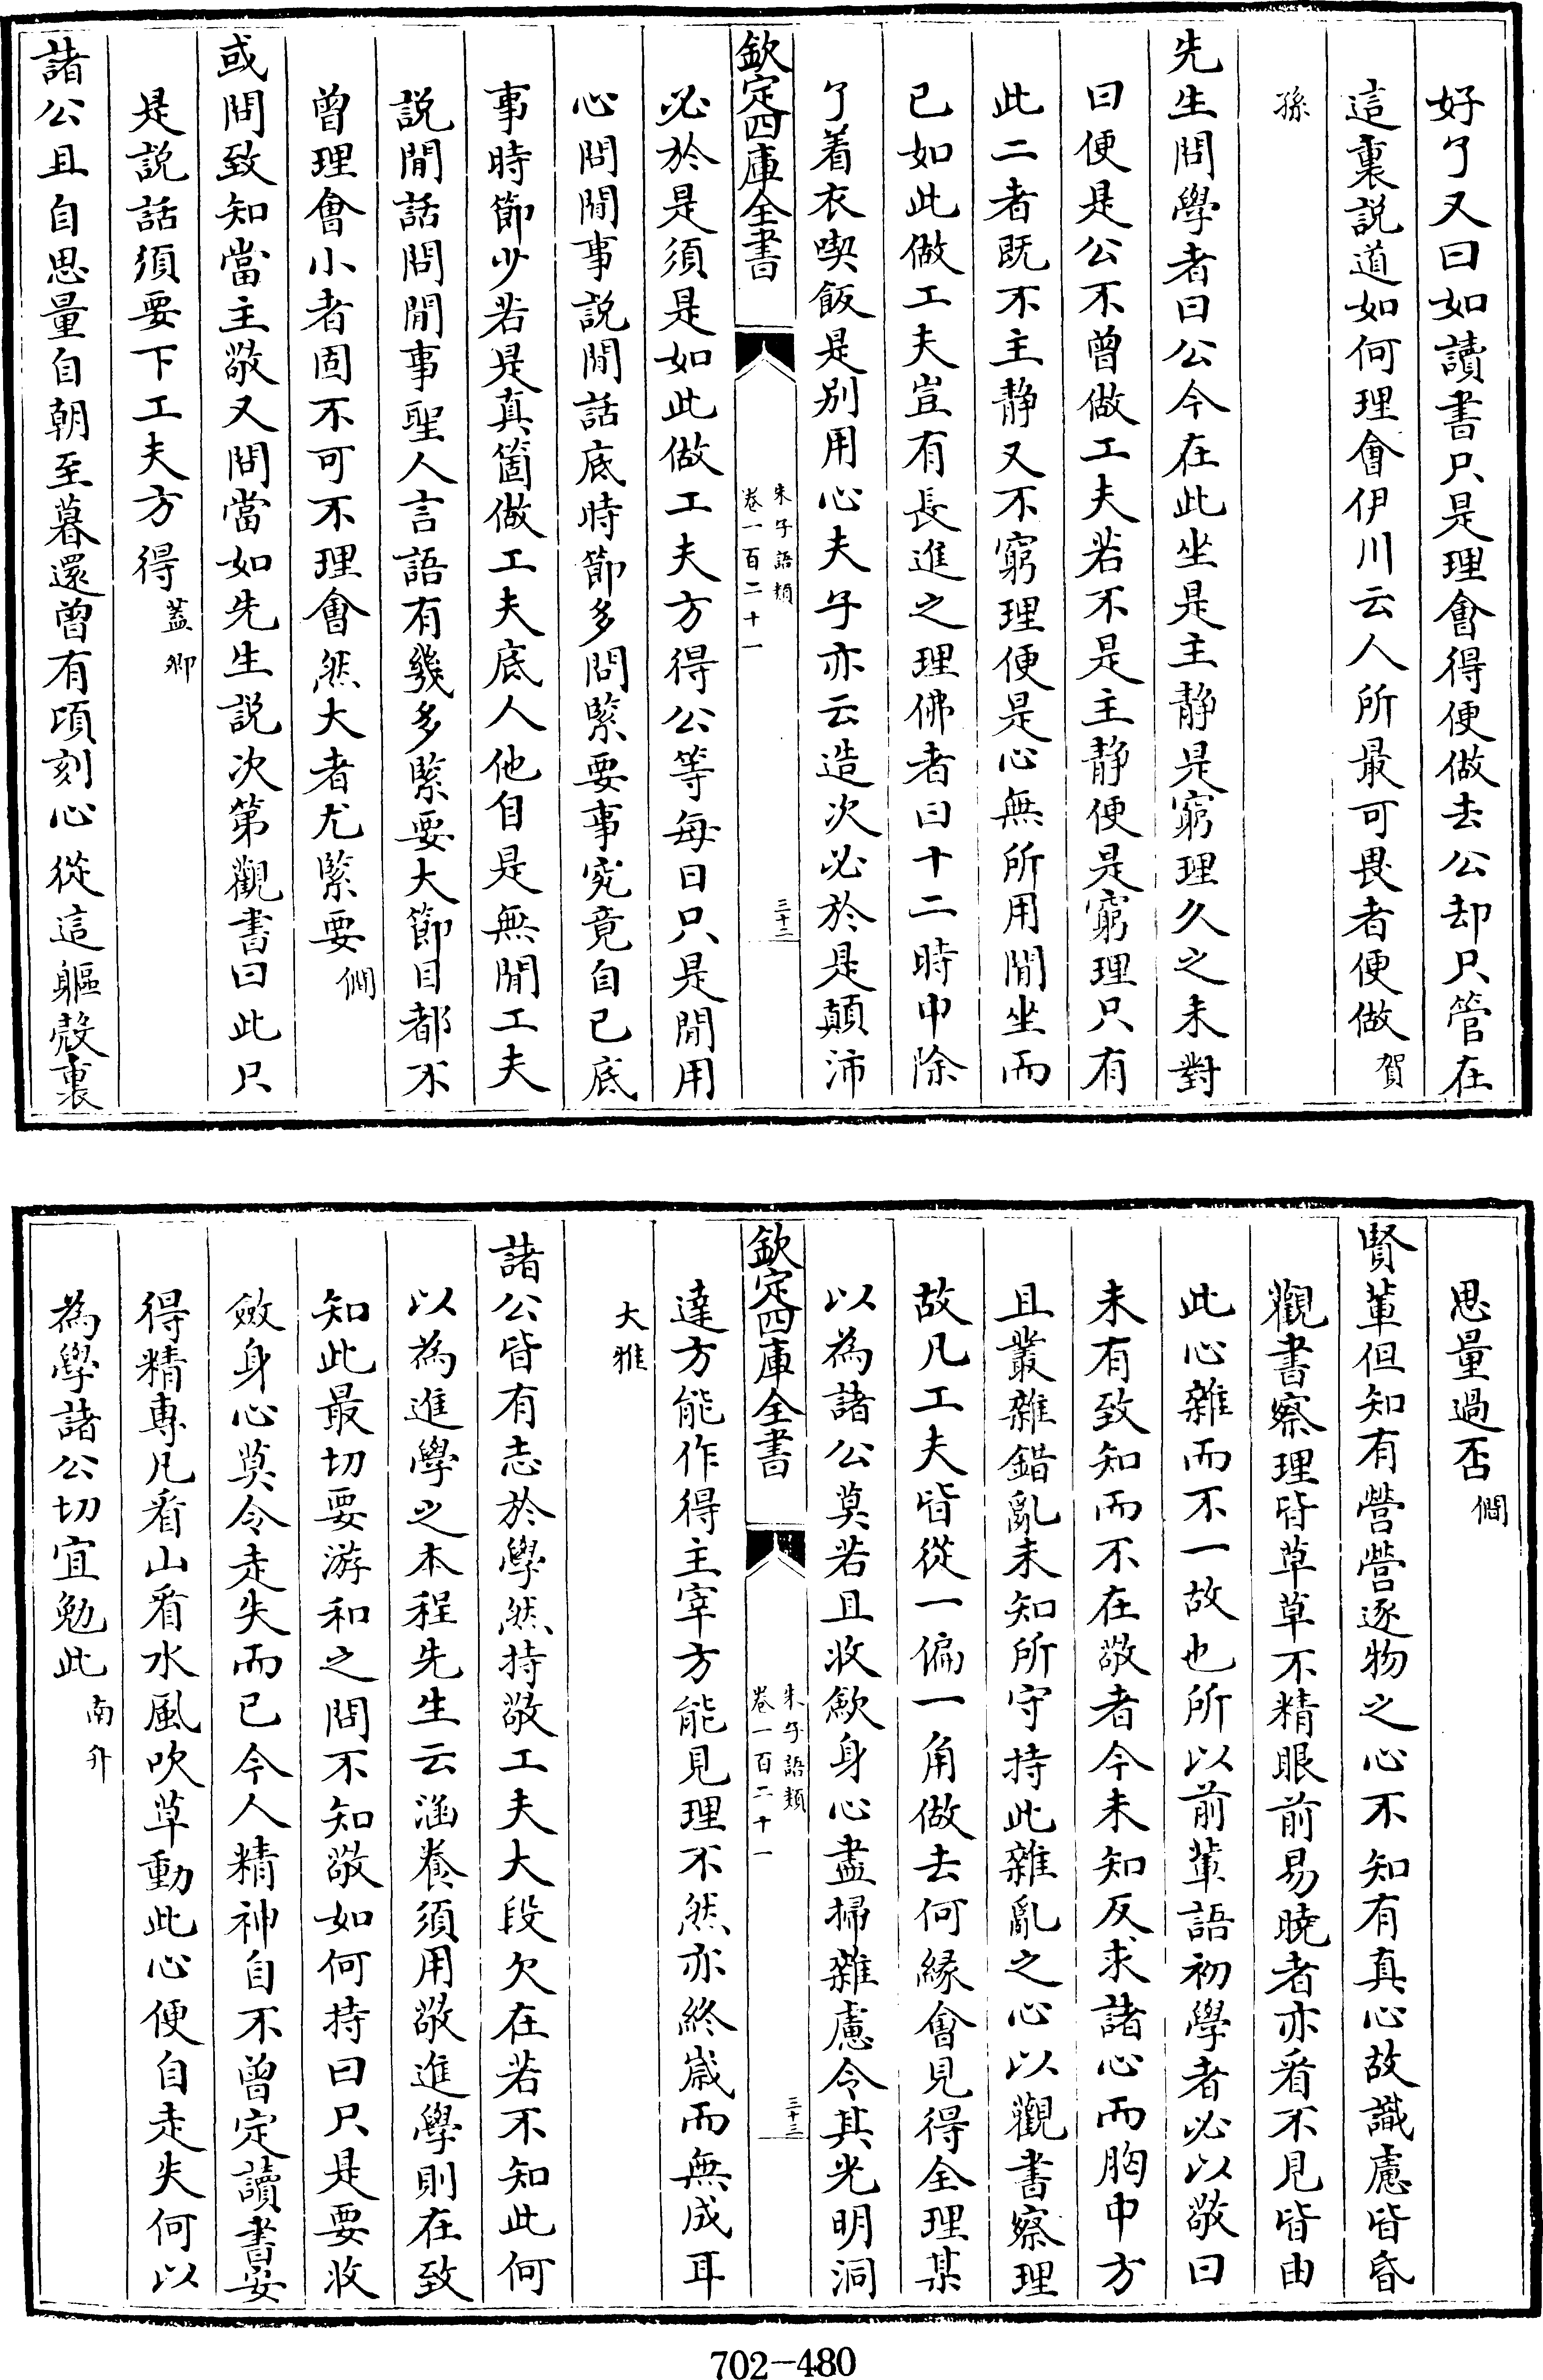 好了又曰如讀書只是理會得便做去公却只管在
這裏説道如何理會伊川云人所最可畏者便做賀
孫
先生問學者曰公今在此坐是主静是窮理久之未對
曰便是公不曾做工夫若不是主静便是窮理只有
此二者既不主静又不窮理便是心無所用閒坐而
已如此做工夫豈有長進之理佛者曰十二時中除
了着衣喫飯是别用心夫子亦云造次必於是顛沛
欽定四庫全書
朱子語類
卷一百二十一
三十二
必於是須是如此做工夫方得公等每日只是閒用
心問閒事説閒話底時節多問緊要事究竟自己底
事時節少若是真箇做工夫底人他自是無閒工夫
説閒話問閒事聖人言語有幾多緊要大節目都不
曾理會小者固不可不理會然大者尤緊要僩
或問致知當主敬又問當如先生説次第觀書曰此只
是説話須要下工夫方得蓋卿
諸公且自思量自朝至暮還曾有頃刻心從這軀殼裏
思量過否僩
賢輩但知有營營逐物之心不知有真心故識慮皆昏
觀書察理皆草草不精眼前易曉者亦看不見皆由
此心雜而不一故也所以前輩語初學者必以敬曰
未有致知而不在敬者今未知反求諸心而胸中方
且叢雜錯亂未知所守持此雜亂之心以觀書察理
故凡工夫皆從一偏一角做去何縁會見得全理某
以為諸公莫若且收斂身心盡掃雜慮令其光明洞
欽定四庫全書
朱子語類
卷一百二十一
三十三
達方能作得主宰方能見理不然亦終嵗而無成耳
大雅
諸公皆有志於學然持敬工夫大段欠在若不知此何
以為進學之本程先生云涵養須用敬進學則在致
知此最切要游和之問不知敬如何持曰只是要收
斂身心莫令走失而已今人精神自不曾定讀書安
得精專凡看山看水風吹草動此心便自走失何以
為學諸公切宜勉此南升
702-480